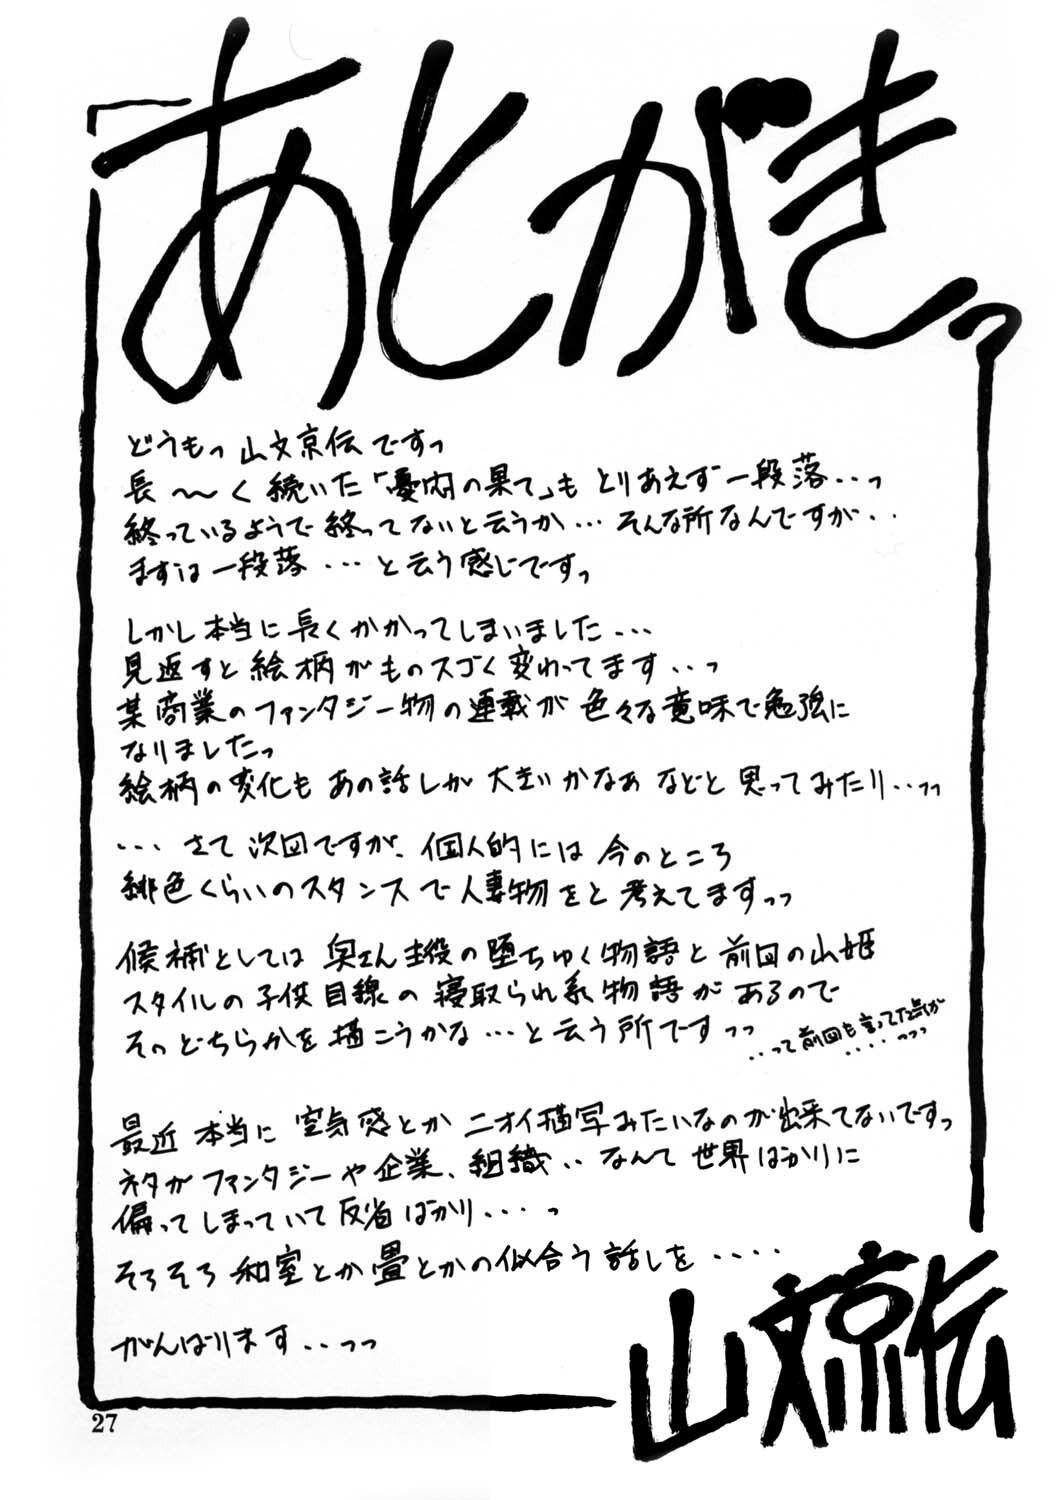 あとがきっ
どうもっ 山文京伝ですっ
長〜く続いた「憂内の果て」も とりあえず一段落‥っ
終っているようで終ってないと云うか… そんな所なんですが‥
まずは一段落…と云う感じですっ
しかし本当に長くかかってしまいました…
見返すと絵柄がものスゴく変わってます‥っ
某商業のファンタジー物の連載が色々な意味で勉強に
なりましたっ
絵柄の変化も あの話しが 大きいかなあ などと 思ってみたり‥っっ
…さて次回ですが、個人的には 今のところ
緋色くらいのスタンスで人妻物をと考えてますっっ
候補としては 奥さん主役の堕ちゆく物語と 前回の山姫
スタイルの子供目線の寝取られ系物語が あるので
そのどちらかを描こうかな…と云う所ですっっ
‥って前回も言ってた気が
‥‥っっっ
最近 本当に 空気感とか ニオイ描写みたいなのが出来てないですっ
ネタがファンタジーや企業、組織‥なんて世界ばかりに
偏ってしまっていて反省ばかり‥‥っ
そろそろ 和室とか畳とかの似合う話しを ‥‥
がんばります‥っっ
山文京伝
27